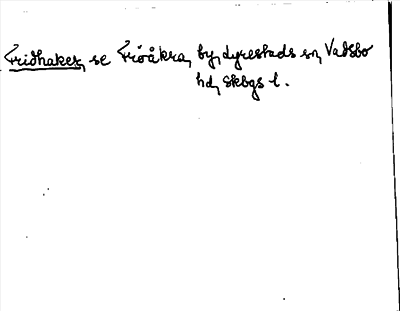 Fridhaker, se Fröåkra, by, Lyrestads sn, Vadsbo
hd, Skbgs l.